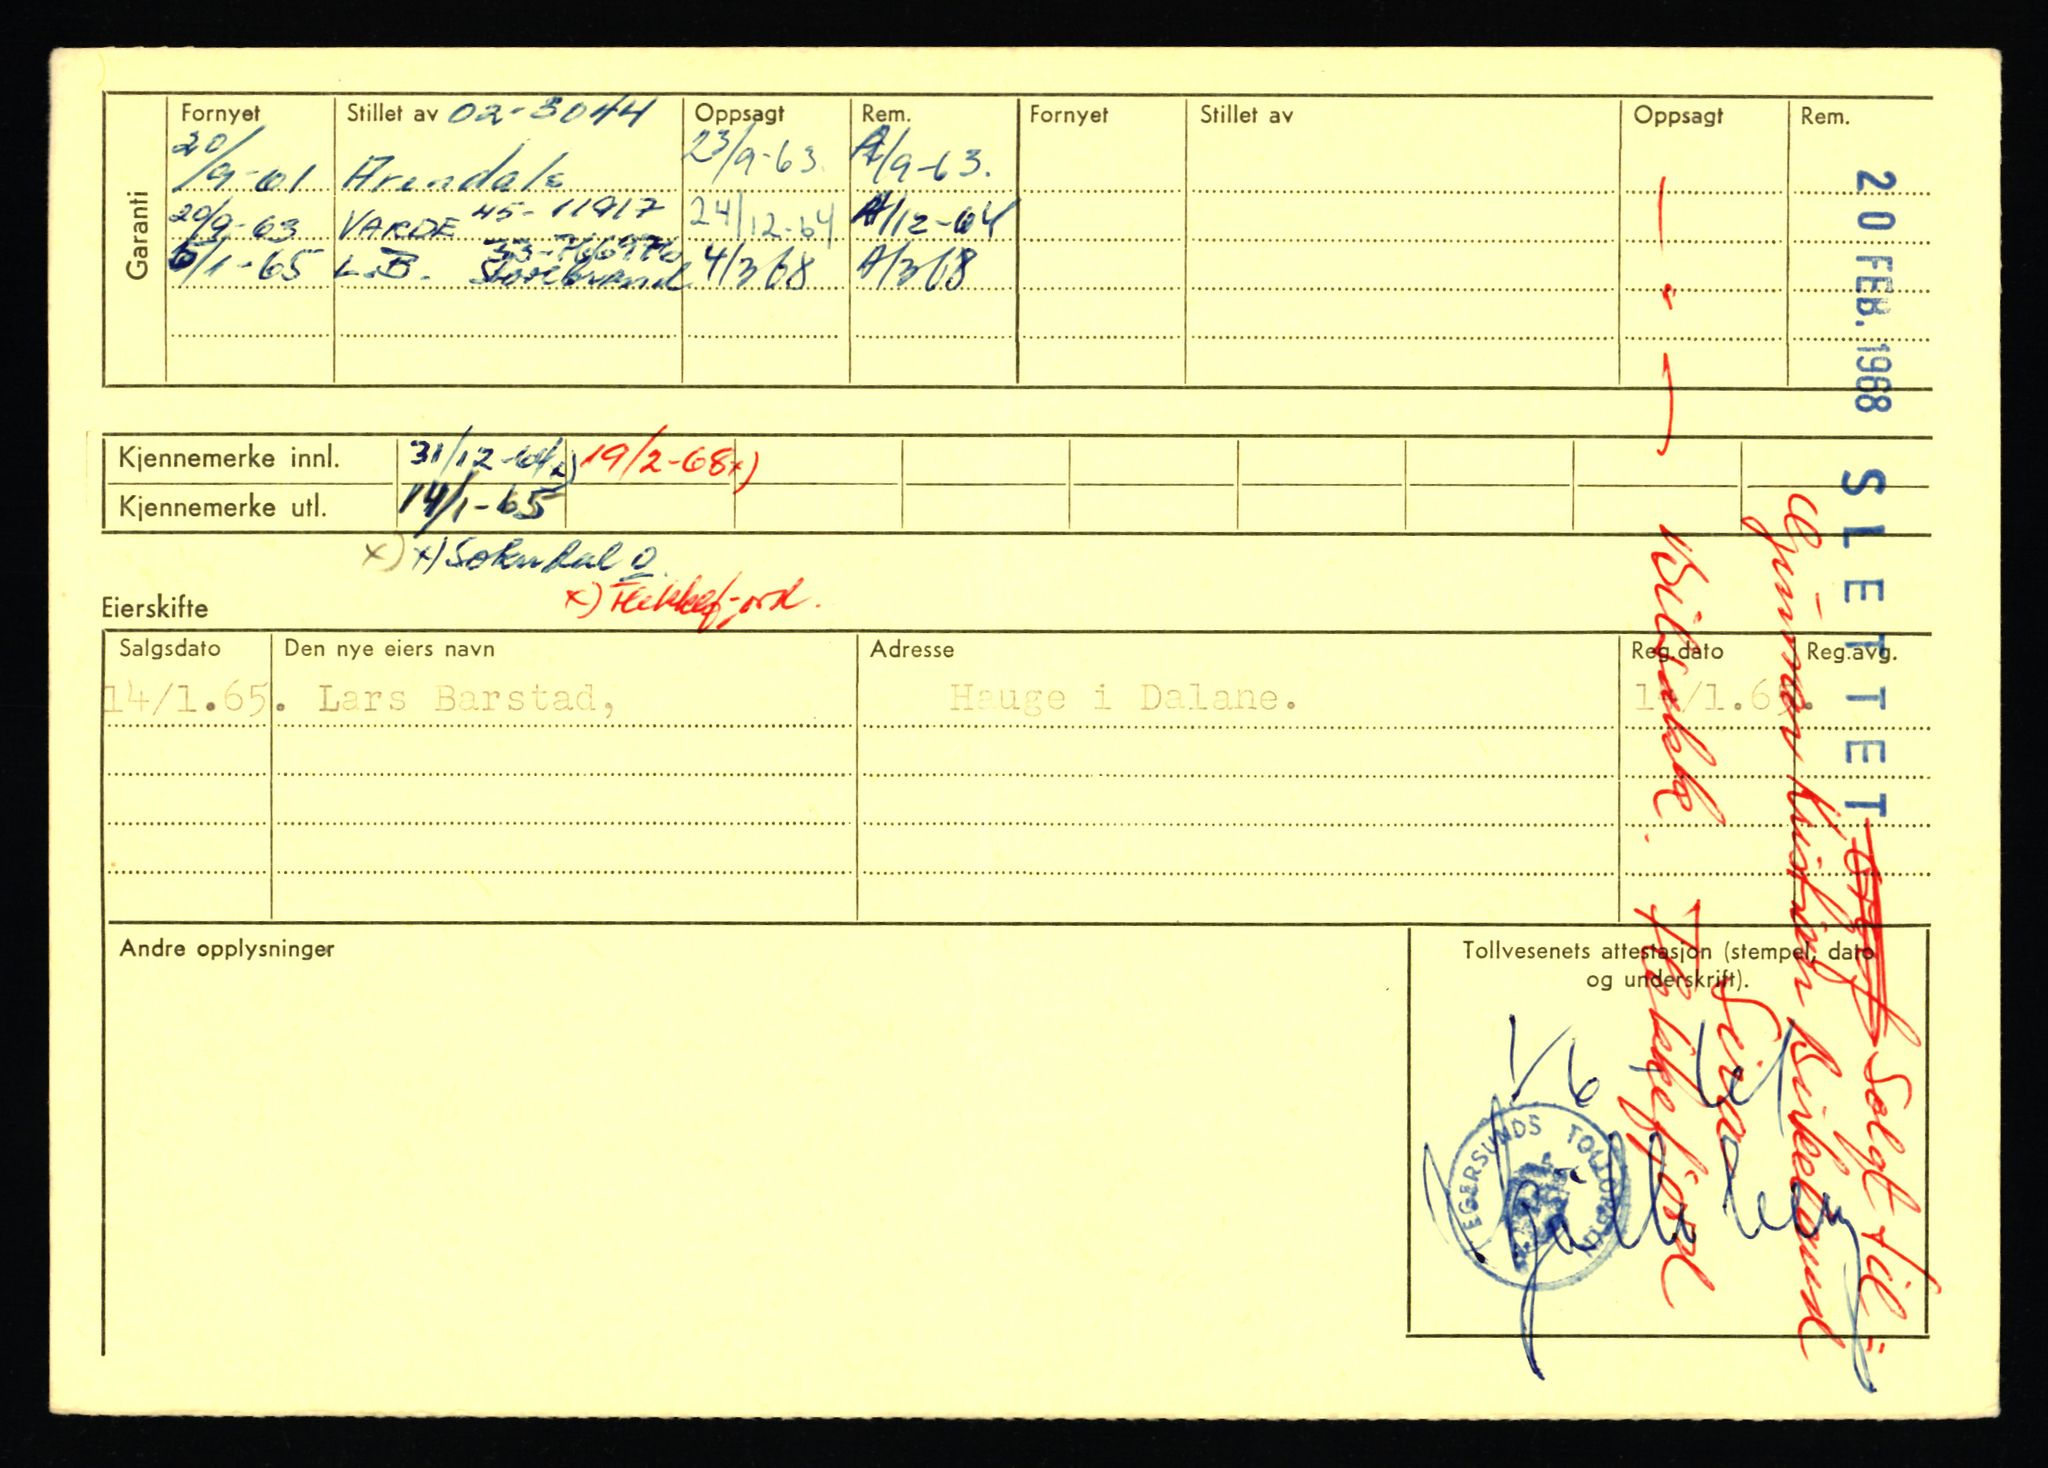 Garanti
Fornyet Stillet av 02-3044 Oppsagt Rem. Fornyet Stillet av Oppsagt Rem.
20/9-61 Arendals 23/9-63. A/9-63.
20/9-63 VARDE 45-11917 24/12-64 A/12-64
33-766976
/1-65 L.B. Storebrand 4/3 68 A/3 68
Kjennemerke innl. 31/12-64 x) 19/2-68 x)
Kjennemerke utl. 14/1-65
x) x) Sokndal O.
x) Flekkefjord.
Eierskifte
Salgsdato Den nye eiers navn Adresse Reg.dato Reg.avg.
14/1.65. Lars Barstad, Hauge i Dalane. 14/1.65.
Andre opplysninger
Tollvesenets attestasjon (stempel, dato
og underskrift).
1/6 61
EGERSUNDS TOLL
20 FEB. 1968 SLETTET
Solgt til:
Gunnar Birkeland
Sira
Flekkefjord